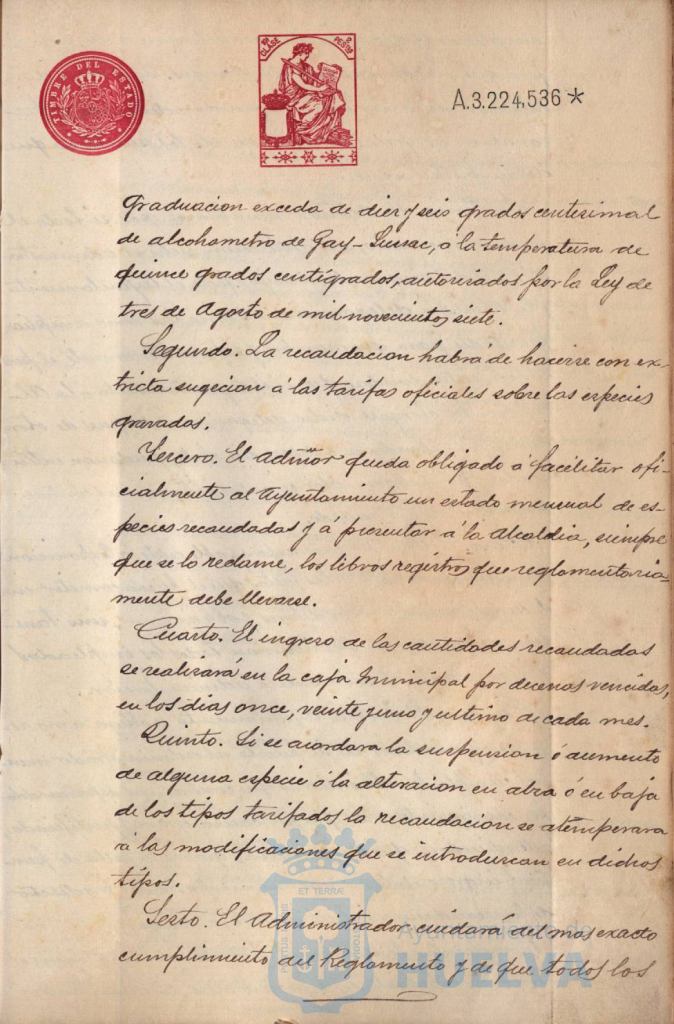 TIMBRE DEL ESTADO
10ª CLASE 2 PESTAS
A.3.224,536*
graduacion exceda de diez y seis grados centesimal
de alcohometro de Gay-Lussac, á la temperatura de
quince grados centígrados, autorizados por la Ley de
tres de Agosto de mil novecientos siete.
Segundo. La recaudacion habrá de hacerse con ex-
tricta sugecion á las tarifas oficiales sobre las especies
gravadas.
Tercero. El Admñor queda obligado á facilitar ofi-
cialmente al Ayuntamiento un estado mensual de es-
pecies recaudadas y á presentar á la Alcaldia, siempre
que se lo reclame, los libros registros que reglamentaria-
mente debe llevarse.
Cuarto. El ingreso de las cantidades recaudadas
se realizará en la caja Municipal por decenas vencidas,
en los dias once, veinte y uno y ultimo de cada mes.
Quinto. Si se acordara la suspension ó aumento
de alguna especie ó la alteracion en alza ó en baja
de los tipos tarifados la recaudacion se atemperara
á las modificaciones que se introduzcan en dichos
tipos.
Sesto. El Administrador cuidará del mas exacto
cumplimiento del Reglamento y de que todos los
ET TERRÆ
Ayuntamiento de
HUELVA